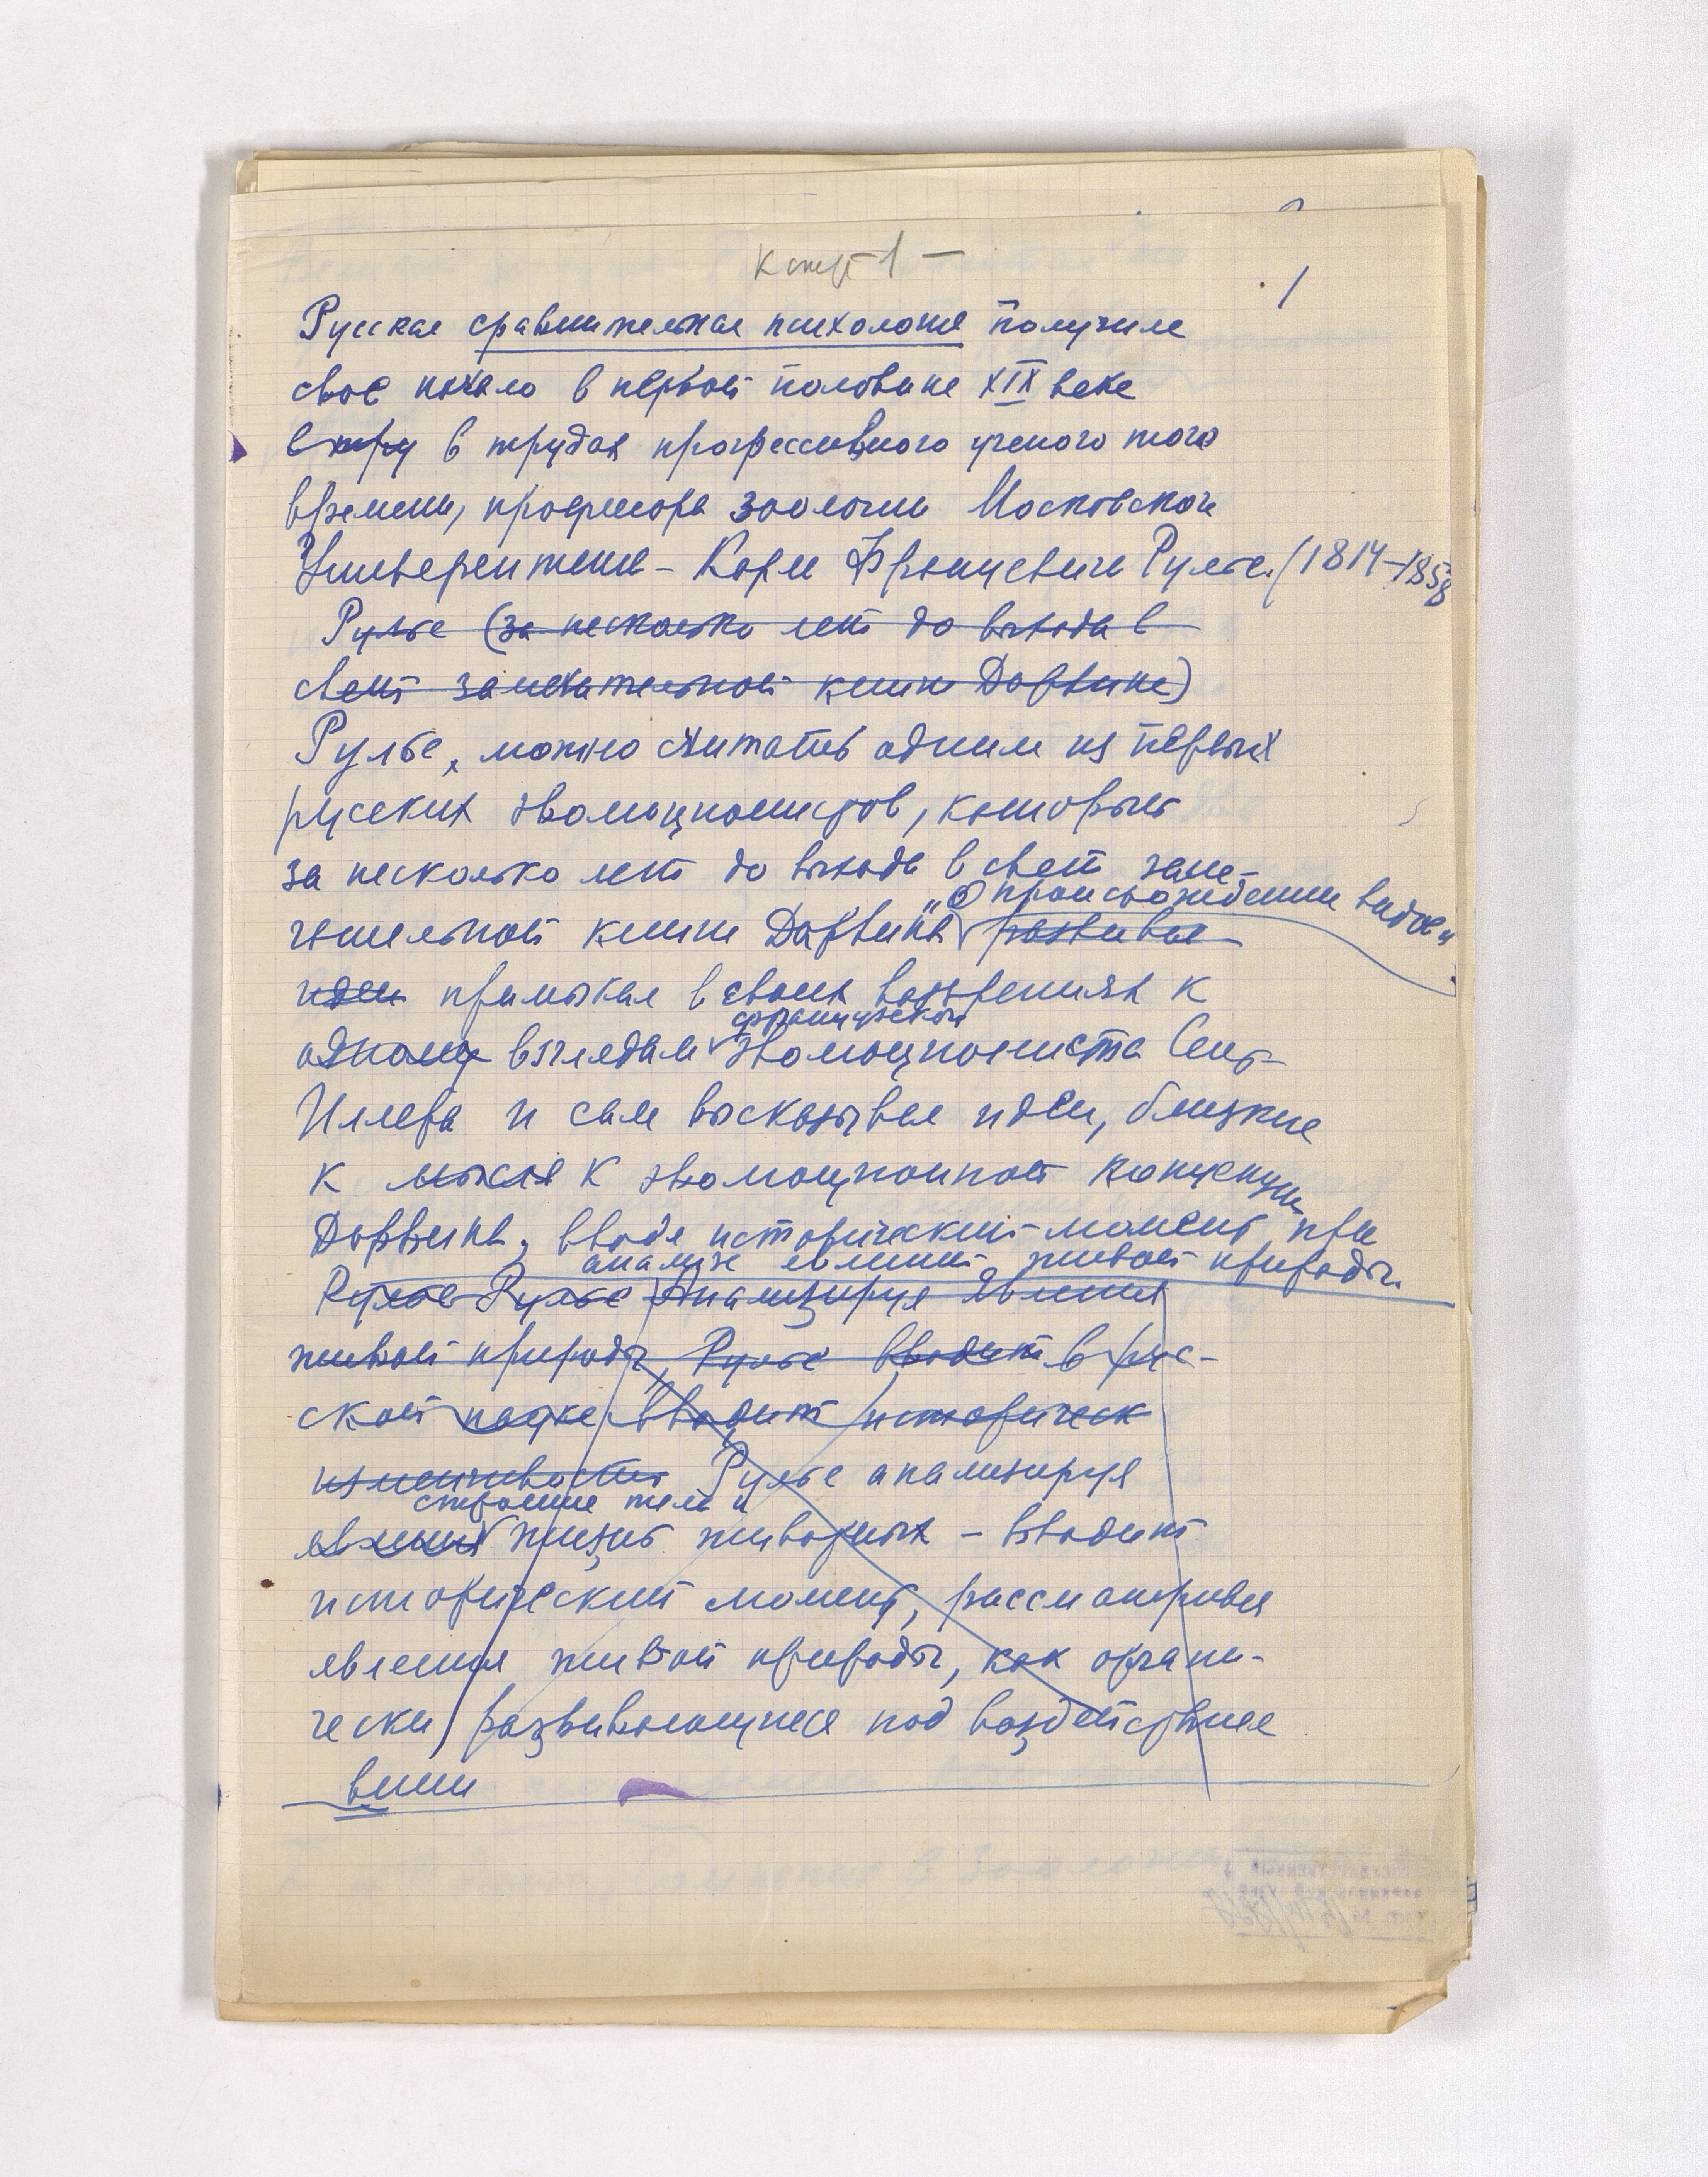 к стр 1 —
1
Русская сравнительная психология получила
свое начало в первой половине XIX века
в тру в трудах прогрессивного ученого того
времени, профессора зоологии Московского
Университета – Карла Францевича Рулье. (1814–1858
Рулье (за несколько лет до выхода в
свет замечательной книги Дарвина)
Рулье, можно считать одним из первых
русских эволюционистов, который
за несколько лет до выхода в свет заме-
„О происхождении видов"
чательной книги Дарвина развивал
идеи примыкал в своих воззрениях к
французского
одному взглядам эволюциониста Сент-
Иллера и сам высказывал идеи, близкие
к мысля к эволюционной концепции
Дарвина, вводя исторический момент при
анализе явлений живой природы.
Рулье Рулье Анализируя явления
живой природы, Рулье вводит в рус-
ской науке вводит историческ
изменчивость Рулье анализируя
строение тела и
явления жизнь животных – вводит
исторический момент, рассматривая
явления живой природы, как органи-
чески развивающиеся под воздействием
внеш